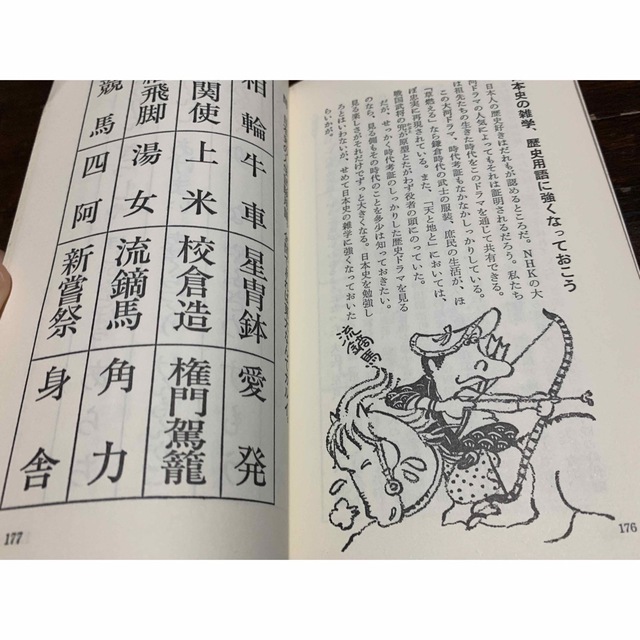 本史の雑学、歴史用語に強くなっておこう
日本人の歴史好きはだれもが認めるところだ。NHKの大
河ドラマの人気によってもそれは証明されるだろう。私たち
は祖先たちの生きた時代をこのドラマを通じて共有できる。
この大河ドラマ、時代考証もなかなかしっかりしている。
『草燃える』なら鎌倉時代の武士の服装、庶民の生活が、ほ
ぼ忠実に再現されている。また、『天と地と』においては、
戦国武将の兜が原型とたがわず役者の頭にのっていた。
だが、せっかく時代考証のしっかりした歴史ドラマを見る
のなら、見る側もその時代のことを多少は知っておきたい。
見る楽しさがそれだけでずっと大きくなる。日本史を勉強し
ろとはいわないが、せめて日本史の雑学に強くなっておいた
らいかが。
流鏑馬
176
相輪
牛車
星冑鉢
愛発
関使
上米
校倉造
権門駕籠
飛脚
湯女
流鏑馬
角力
競馬
四阿
新嘗祭
身舎
177